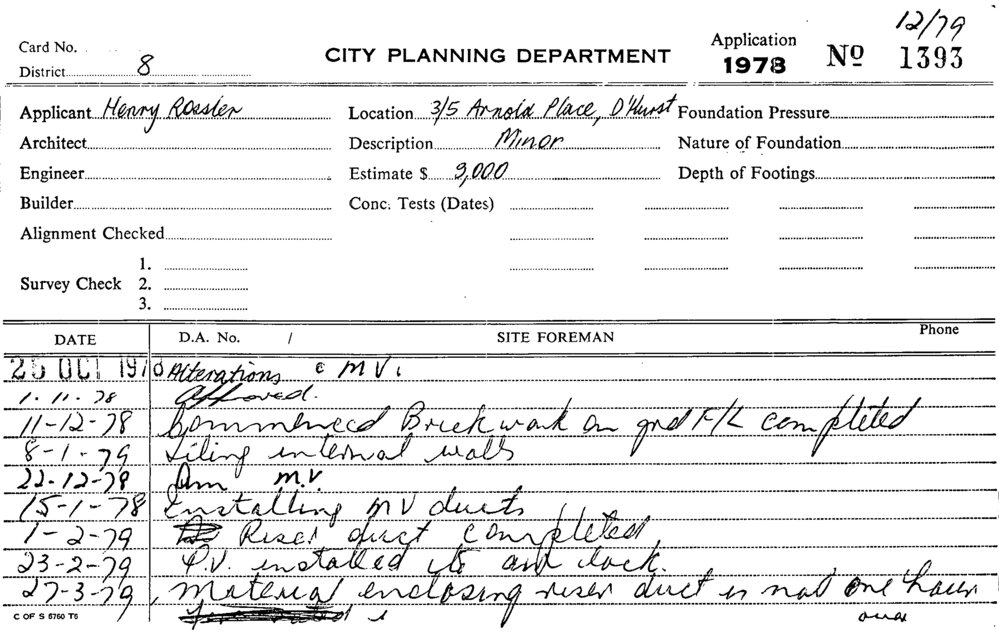 12/79
Card No.
CITY PLANNING DEPARTMENT
Application
1978
Nº 1393
District 8
Applicant Henry Rossler
Location 3/5 Arnold Place, D'Hurst
Foundation Pressure
Architect
Description Minor
Nature of Foundation
Engineer
Estimate $ 3,000
Depth of Footings
Builder
Conc. Tests (Dates)
Alignment Checked
1.
Survey Check 2.
3.
DATE D.A. No. / SITE FOREMAN Phone
25 OCT 1978 Alterations & MV.
1.11.78 Approved.
11-12-78 Commenced Brickwork on grd F/L completed
8-1-79 Tiling internal walls
22-12-78 Am M.V
15-1-78 Installing MV ducts
1-2-79 Riser duct completed
23-2-79 P.V. installed to air lock.
27-3-79 Material enclosing riser duct is not one hour
C OF S 5760 T6